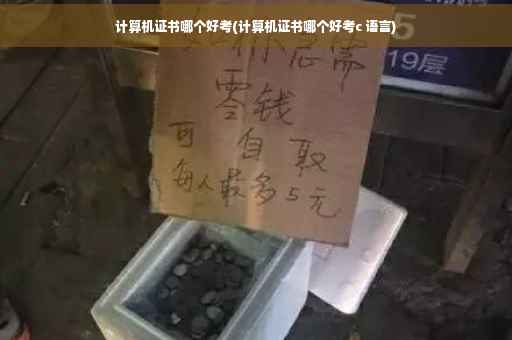 计算机证书哪个好考(计算机证书哪个好考c 语言)
5
19层
你急需
零钱
可自取
每人最多5元